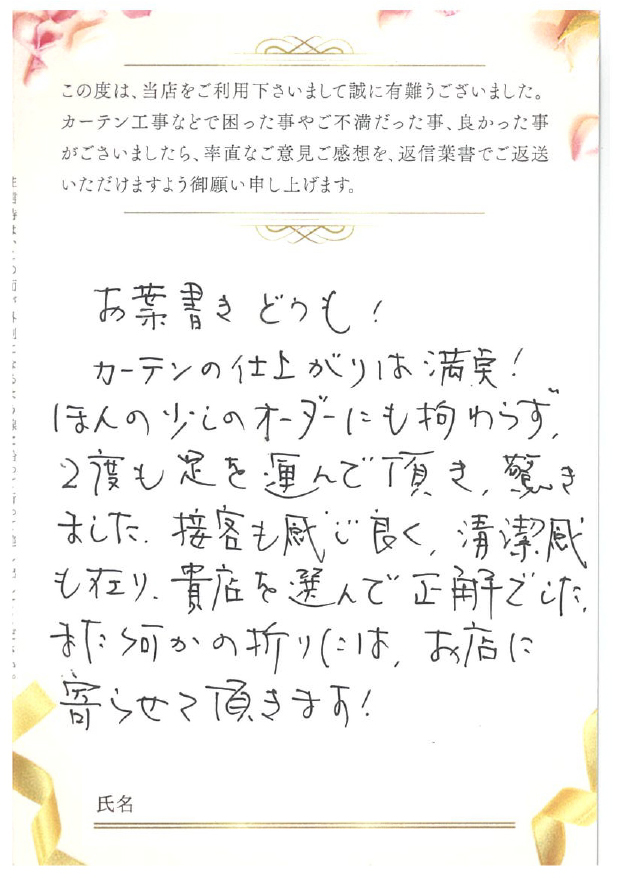 この度は、当店をご利用下さいまして誠に有難うございました。
カーテン工事などで困った事やご不満だった事、良かった事
がございましたら、率直なご意見ご感想を、返信葉書でご返送
いただけますよう御願い申し上げます。
お葉書きどうも!
カーテンの仕上がりは満足!
ほんの少しのオーダーにも拘わらず、
2度も足を運んで頂き、驚き
ました。接客も感じ良く、清潔感
も在り、貴店を選んで正解でした。
また何かの折りには、お店に
寄らせて頂きます!
氏名